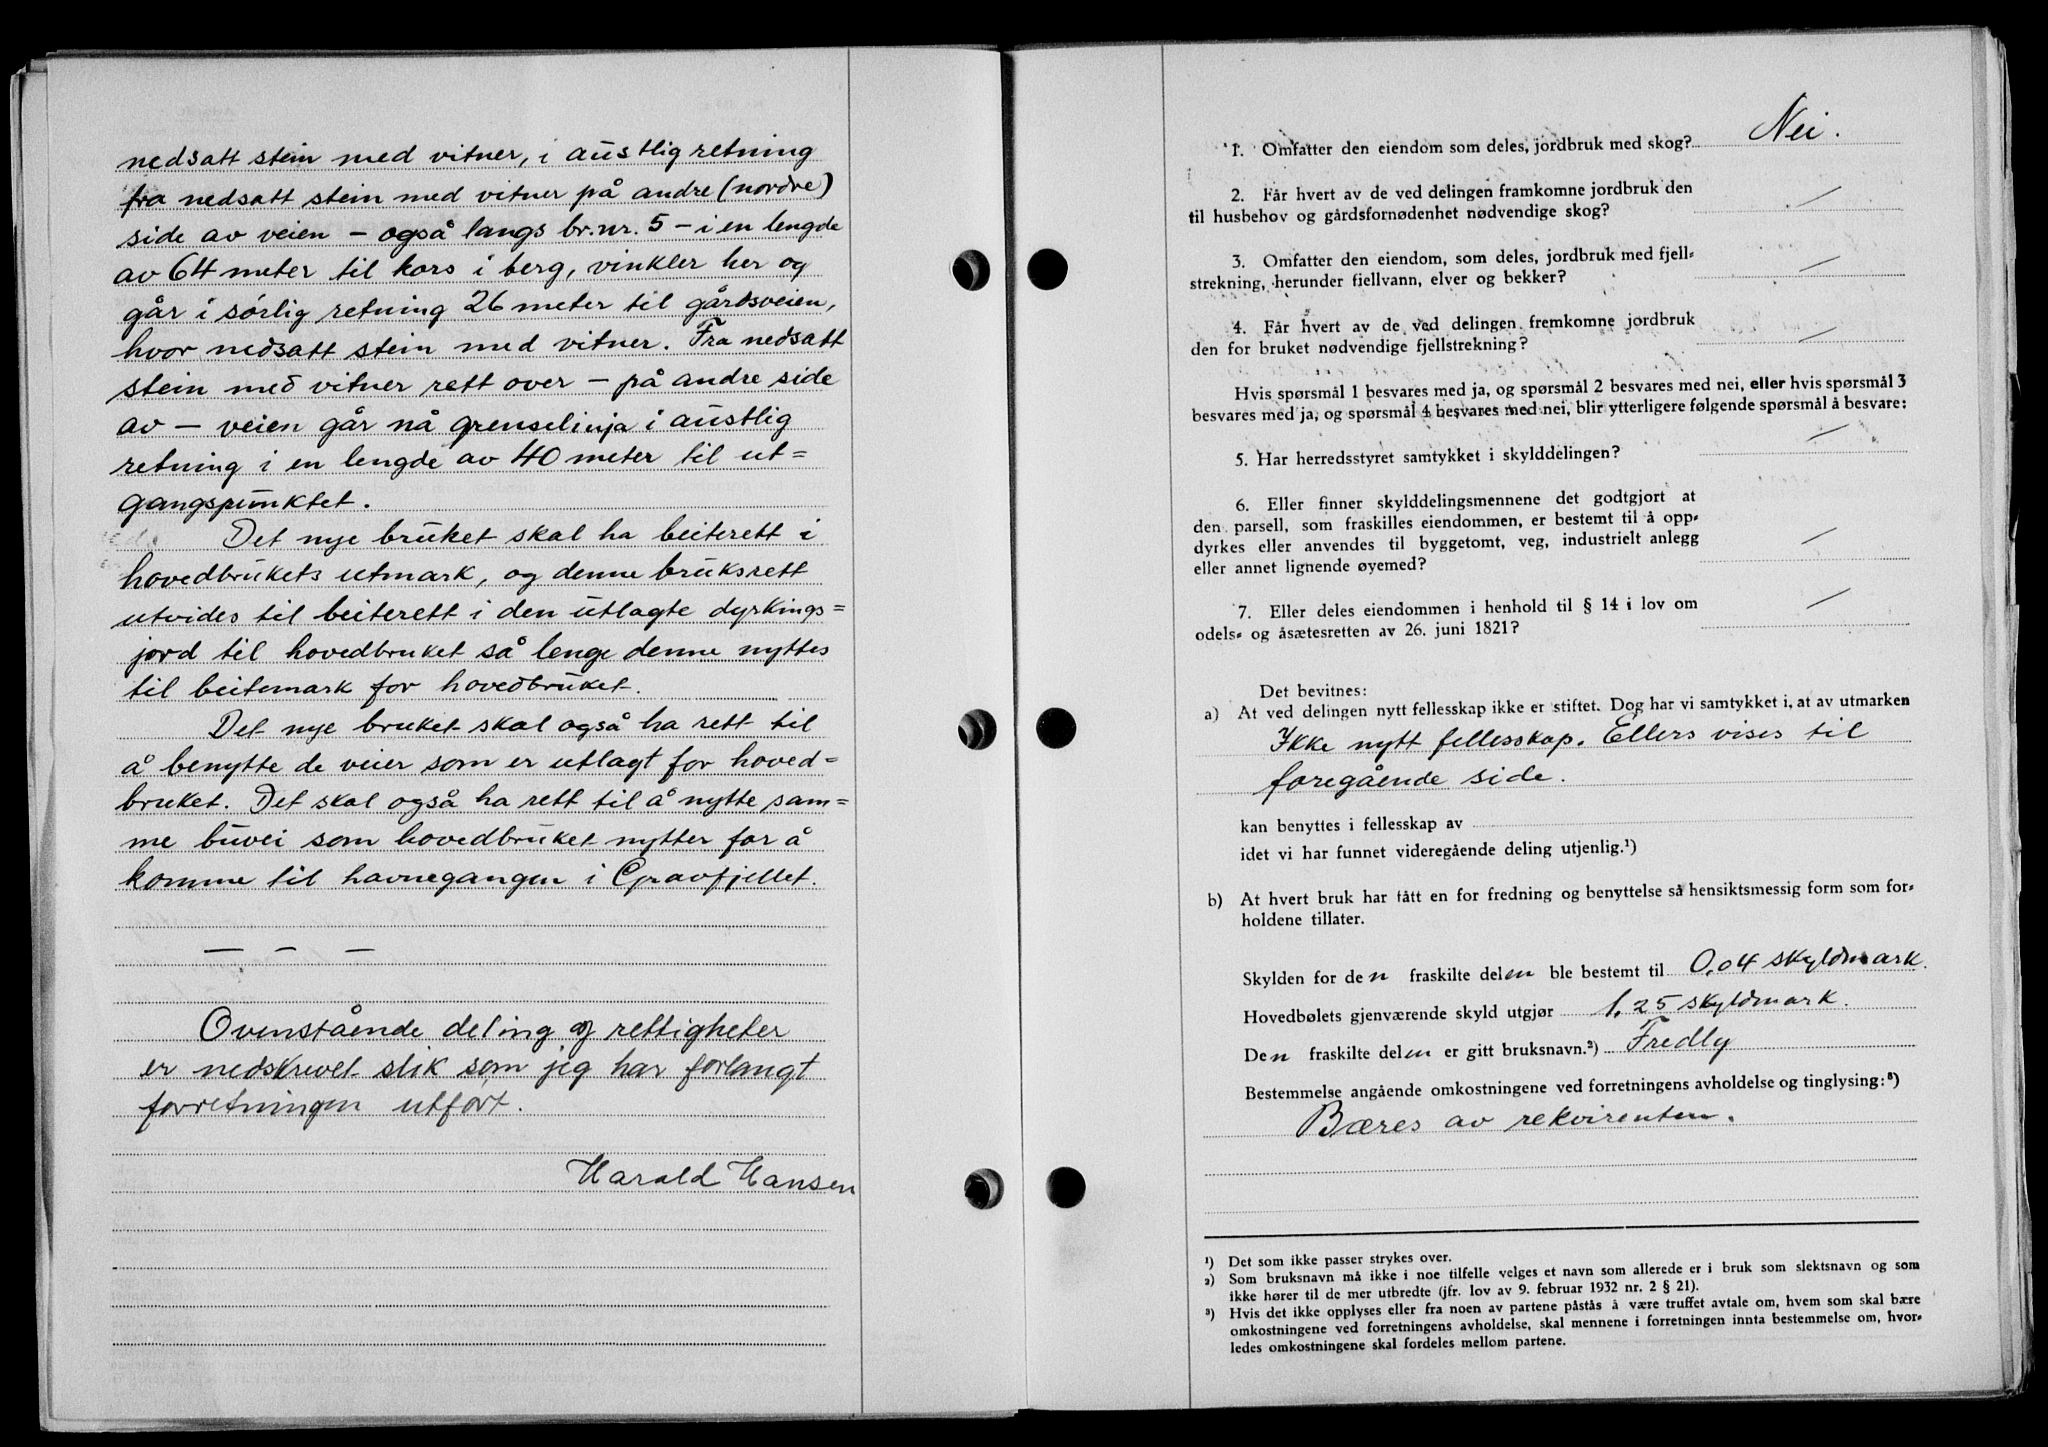 nedsatt stein med vitner, i austlig retning
fra nedsatt stein med vitner på andre (nordre)
side av veien – også langs br.nr. 5 – i en lengde
av 64 meter til kors i berg, vinkler her og
går i sørlig retning 26 meter til gårdsveien,
hvor nedsatt stein med vitner. Fra nedsatt
stein med vitner rett over – på andre side
av – veien går nå grenselinja i austlig
retning i en lengde av 40 meter til ut=
gangspunktet.
Det nye bruket skal ha beiterett i
hovedbrukets utmark, og denne bruksrett
utvides til beiterett i den utlagte dyrkings=
jord til hovedbruket så lenge denne nyttes
til beitemark for hovedbruket.
Det nye bruket skal også ha rett til
å benytte de veier som er utlagt for hoved=
bruket. Det skal også ha rett til å nytte sam=
me buvei som hovedbruket nytter for å
komme til havnegangen i Gravfjellet.
— — —
Ovenstående deling og rettigheter
er nedskrevet slik som jeg har forlangt
forretningen utført.
Harald Hansen
1. Omfatter den eiendom som deles, jordbruk med skog? Nei.
2. Får hvert av de ved delingen framkomne jordbruk den
til husbehov og gårdsfornødenhet nødvendige skog? /
3. Omfatter den eiendom, som deles, jordbruk med fjell-
strekning, herunder fjellvann, elver og bekker? /
4. Får hvert av de ved delingen fremkomne jordbruk
den for bruket nødvendige fjellstrekning? /
Hvis spørsmål 1 besvares med ja, og spørsmål 2 besvares med nei, eller hvis spørsmål 3
besvares med ja, og spørsmål 4 besvares med nei, blir ytterligere følgende spørsmål å besvare:
5. Har herredsstyret samtykket i skylddelingen? /
6. Eller finner skylddelingsmennene det godtgjort at
den parsell, som fraskilles eiendommen, er bestemt til å opp-
dyrkes eller anvendes til byggetomt, veg, industrielt anlegg
eller annet lignende øyemed? /
7. Eller deles eiendommen i henhold til § 14 i lov om
odels- og åsætesretten av 26. juni 1821? /
Det bevitnes:
a) At ved delingen nytt fellesskap ikke er stiftet. Dog har vi samtykket i, at av utmarken
Ikke nytt fellesskap. Ellers vises til
foregående side.
kan benyttes i fellesskap av
idet vi har funnet videregående deling utjenlig.¹)
b) At hvert bruk har fått en for fredning og benyttelse så hensiktsmessig form som for-
holdene tillater.
Skylden for den fraskilte delen ble bestemt til 0,04 skyldmark.
Hovedbølets gjenværende skyld utgjør 1,25 skyldmark.
Den fraskilte delen er gitt bruksnavn.²) Fredly
Bestemmelse angående omkostningene ved forretningens avholdelse og tinglysing:³)
Bæres av rekvirenten.
¹) Det som ikke passer strykes over.
²) Som bruksnavn må ikke i noe tilfelle velges et navn som allerede er i bruk som slektsnavn og som
ikke hører til de mer utbredte (jfr. lov av 9. februar 1932 nr. 2 § 21).
³) Hvis det ikke opplyses eller fra noen av partene påstås å være truffet avtale om, hvem som skal bære
omkostningene ved forretningens avholdelse, skal mennene i forretningen innta bestemmelse om, hvor-
ledes omkostningene skal fordeles mellom partene.